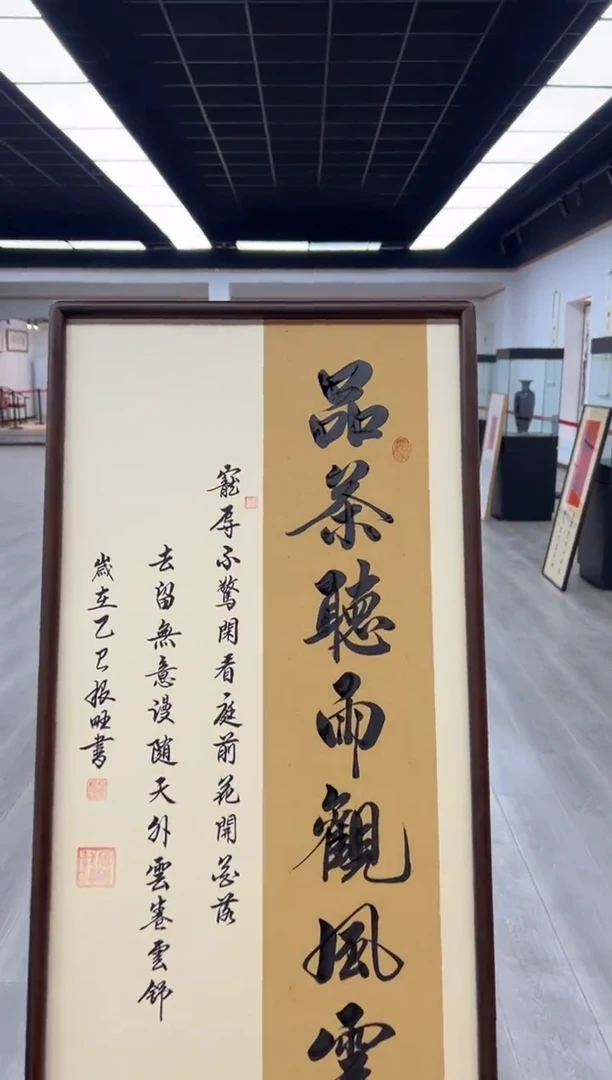 品茶聽雨觀風雲
寵辱不驚閑看庭前花開花落
去留無意漫随天外雲卷雲舒
歲在乙巳振旺書